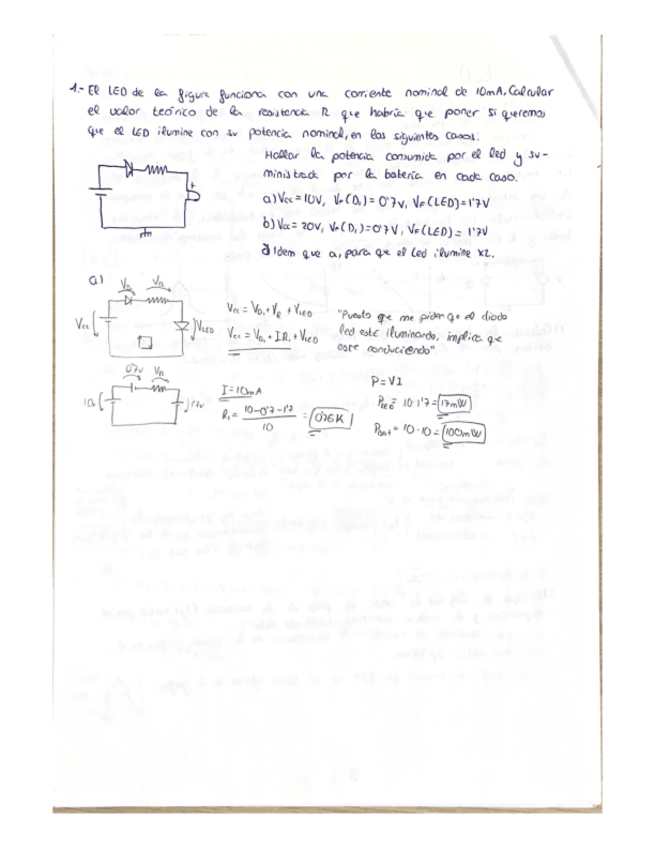 1.- El LED de la figura funciona con una corriente nominal de 10mA. Calcular
el valor teórico de la resistencia R que habría que poner si queremos
que el LED ilumine con su potencia nominal, en los siguientes casos:
Hallar la potencia consumida por el led y su-
ministrada por la batería en cada caso.
a) Vcc = 10V, VF(D1) = 0'7V, VF(LED) = 1'7V
b) Vcc = 20V, VF(D1) = 0'7V, VF(LED) = 1'7V
Idem que a, para que el led ilumine x2.
a)
VD VR
Vcc
VLED
Vcc = VD1 + VR + VLED
Vcc = VD1 + IR1 + VLED
"Puesto que me piden que el diodo
led esté iluminando, implica que
este conduciendo".
0'7V VR
10v
1'7V
I = 10mA
R1 = 10-0'7-1'7 / 10 = 0'76K
P = VI
PLED = 10·1'7 = 17mW
Pbat = 10·10 = 100mW